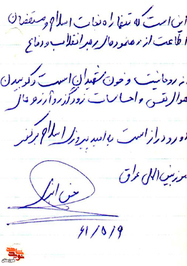 این است که تنها راه نجات اسلام و مستضعفان
اطاعت از رهنمودهای رهبر انقلاب و دفاع
از روحانیت و خون شهیدان است و کوبیدن
هوای نفس و احساسات زودگذر و آرزوهای
دور و دراز است به امید پیروزی اسلام بر کفر
مرز بین‌المللی عراق
۶۱/۵/۹